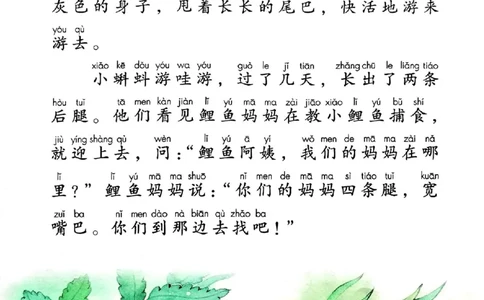 灰色的身子，甩着长长的尾巴，快活地游来
yóu qù
游去。
xiǎo kē dǒu yóu wa yóu guò le jǐ tiān zhǎng chū le liǎng tiáo
小蝌蚪游哇游，过了几天，长出了两条
hòu tuǐ tā men kàn jiàn lǐ yú mā ma zài jiāo xiǎo lǐ yú bǔ shí
后腿。他们看见鲤鱼妈妈在教小鲤鱼捕食，
jiù yíng shàng qù wèn lǐ yú ā yí wǒ men de mā ma zài nǎ
就迎上去，问：“鲤鱼阿姨，我们的妈妈在哪
lǐ lǐ yú mā ma shuō nǐ men de mā ma sì tiáo tuǐ kuān
里？”鲤鱼妈妈说：“你们的妈妈四条腿，宽
zuǐ ba nǐ men dào nà biān qù zhǎo ba
嘴巴。你们到那边去找吧！”